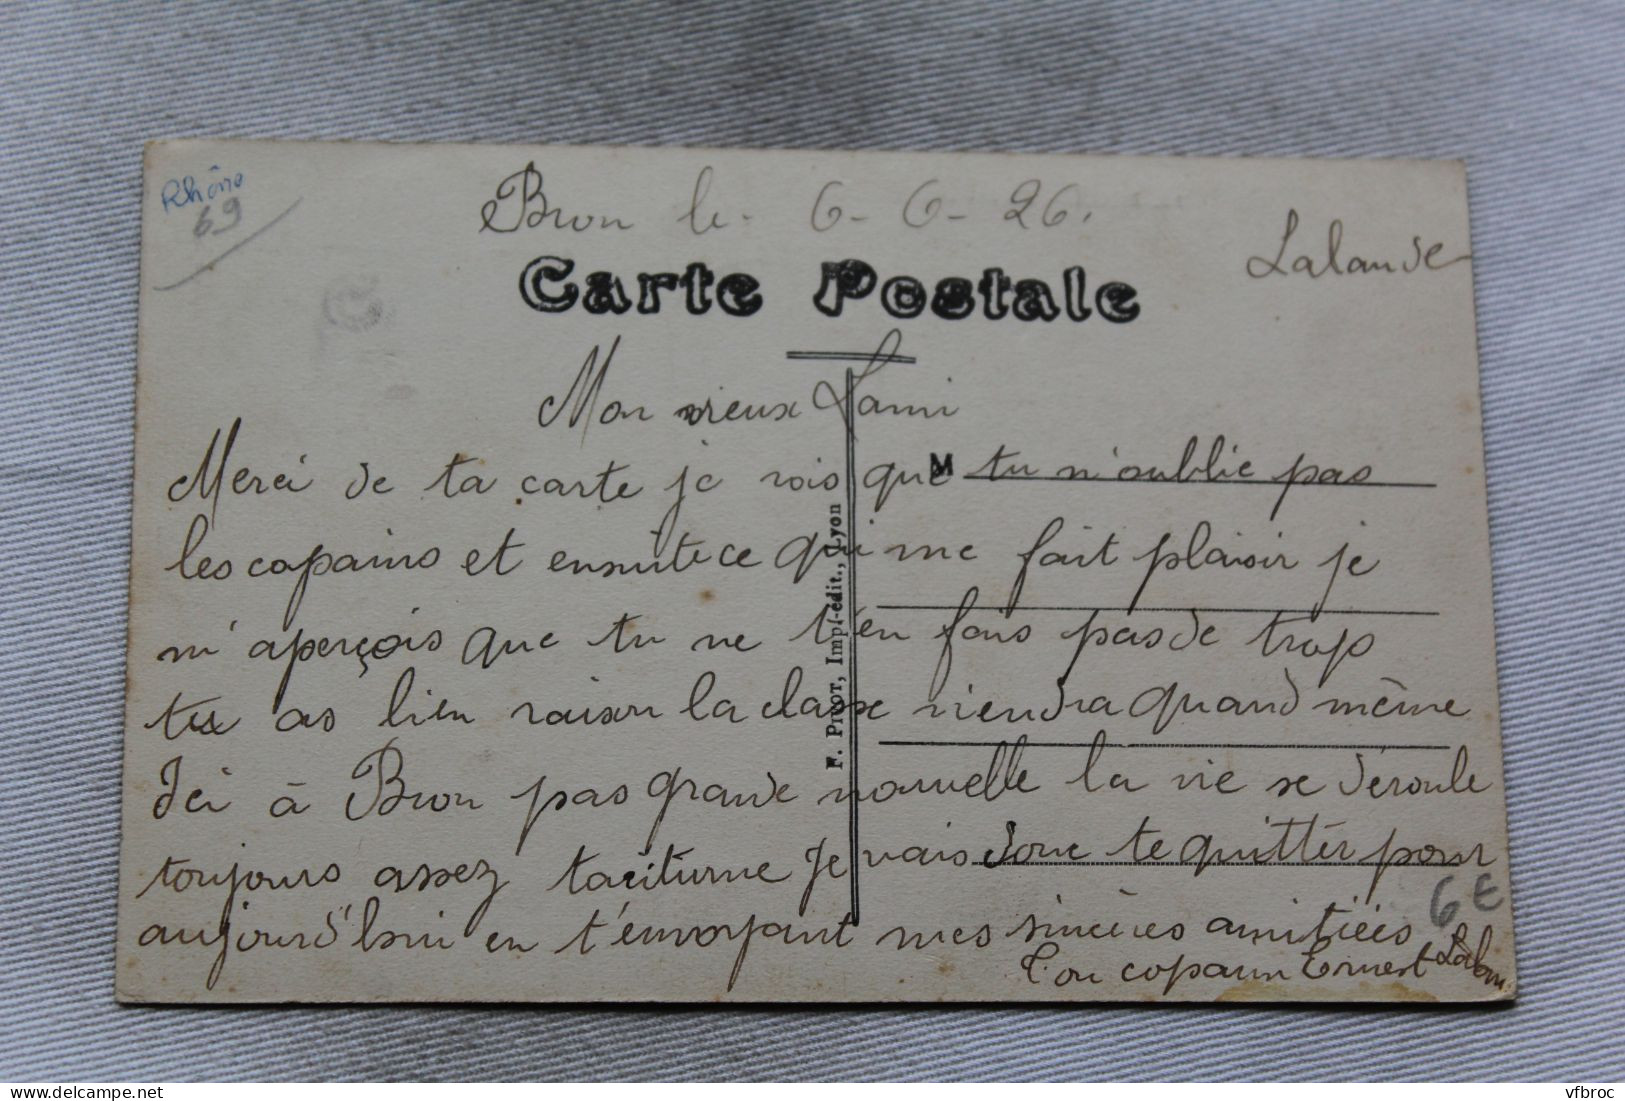 Rhône
69
Bron le. 6-6-26.
Lalande
Carte Postale
Mon vieux Lami
M
Merci de ta carte je vois que tu n'oublie pas
les copains et ensuite ce qui me fait plaisir je
m'aperçois que tu ne t'en fais pas de trop
tu as bien raison la classe viendra quand même
Ici à Bron pas grande nouvelle la vie se déroule
toujours assez taciturne Je vais donc te quitter pour
aujourd'hui en t'envoyant mes sincères amitiées
Ton copain Ernest
6 €
F. Pigot, Imp.-édit., Lyon
delcampe.net
vfbroc